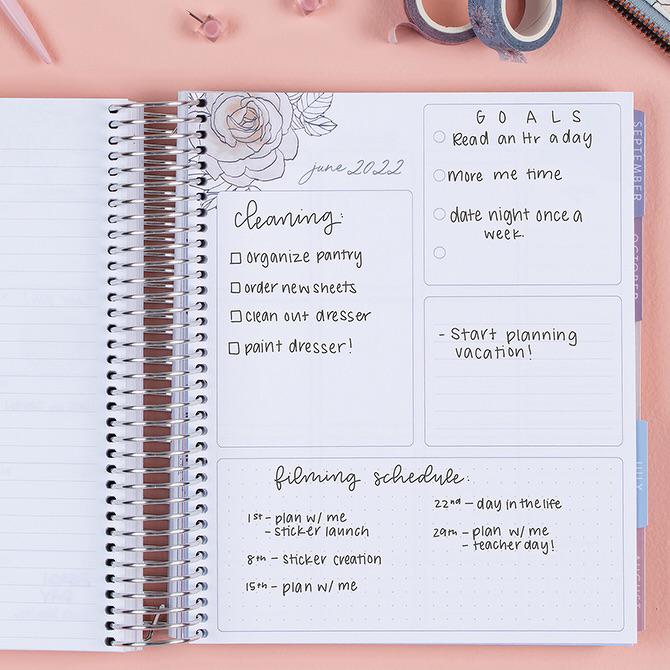 june 2022
GOALS
Read an Hr a day
more me time
date night once a
week.
cleaning:
organize pantry
order new sheets
clean out dresser
paint dresser!
- Start planning
vacation!
filming schedule:
1st - plan w/ me
- sticker launch
8th - sticker creation
15th - plan w/ me
22nd - day in the life
29th - plan w/ me
- teacher day!
SEPTEMBER
OCTOBER
JULY
AUGUST